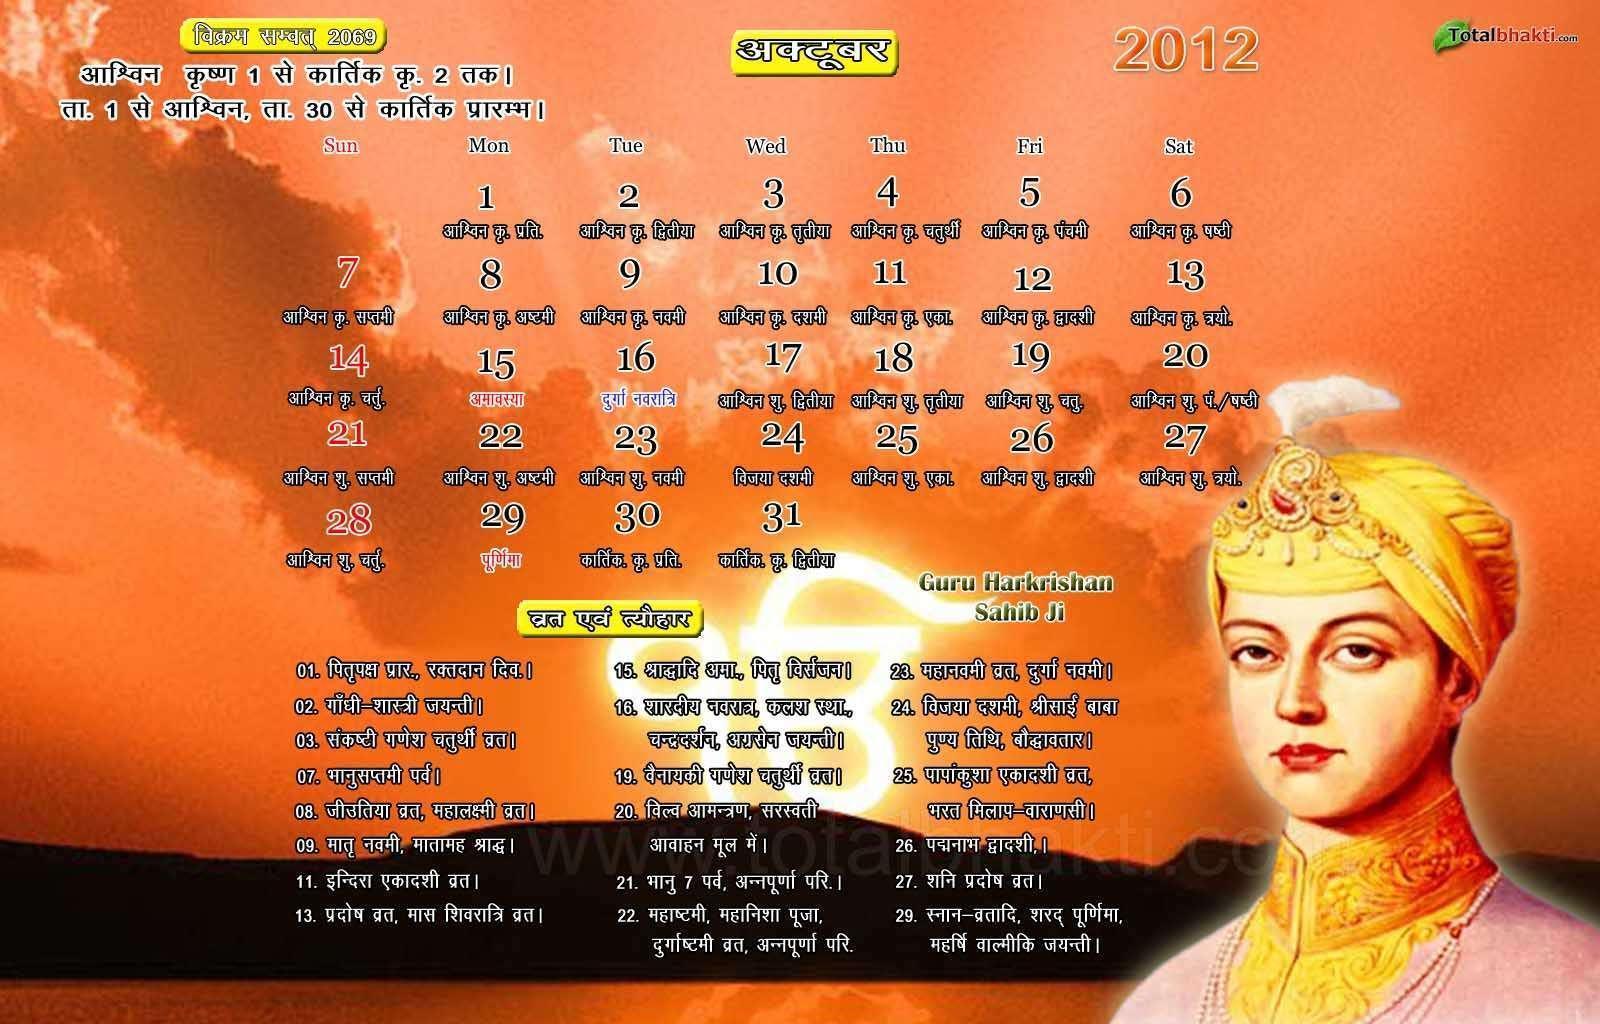 विक्रम सम्वत् 2069
अक्टूबर
2012
Totalbhakti.com
आश्विन कृष्ण 1 से कार्तिक कृ. 2 तक।
ता. 1 से आश्विन, ता. 30 से कार्तिक प्रारम्भ।
Sun Mon Tue Wed Thu Fri Sat
1 2 3 4 5 6
आश्विन कृ. प्रति. आश्विन कृ. द्वितीया आश्विन कृ. तृतीया आश्विन कृ. चतुर्थी आश्विन कृ. पंचमी आश्विन कृ. षष्ठी
7 8 9 10 11 12 13
आश्विन कृ. सप्तमी आश्विन कृ. अष्टमी आश्विन कृ. नवमी आश्विन कृ. दशमी आश्विन कृ. एका. आश्विन कृ. द्वादशी आश्विन कृ. त्रयो.
14 15 16 17 18 19 20
आश्विन कृ. चर्तु. अमावस्या दुर्गा नवरात्रि आश्विन शु. द्वितीया आश्विन शु. तृतीया आश्विन शु. चतु. आश्विन शु. पं./षष्ठी
21 22 23 24 25 26 27
आश्विन शु. सप्तमी आश्विन शु. अष्टमी आश्विन शु. नवमी विजया दशमी आश्विन शु. एका. आश्विन शु. द्वादशी आश्विन शु. त्रयो.
28 29 30 31
आश्विन शु. चर्तु. पूर्णिमा कार्तिक. कृ. प्रति. कार्तिक. कृ. द्वितीया
Guru Harkrishan
Sahib Ji
व्रत एवं त्यौहार
ੴ
01. पितृपक्ष प्रार., रक्तदान दिव.।
02. गाँधी-शास्त्री जयन्ती।
03. संकष्टी गणेश चतुर्थी व्रत।
07. भानुसप्तमी पर्व।
08. जीउतिया व्रत, महालक्ष्मी व्रत।
09. मातृ नवमी, मातामह श्राद्ध।
11. इन्दिरा एकादशी व्रत।
13. प्रदोष व्रत, मास शिवरात्रि व्रत।
15. श्राद्धादि अमा., पितृ विर्सजन।
16. शारदीय नवरात्र, कलश स्था.,
चन्द्रदर्शन, अग्रसेन जयन्ती।
19. वैनायकी गणेश चतुर्थी व्रत।
20. विल्व आमन्त्रण, सरस्वती
आवाहन मूल में।
21. भानु 7 पर्व, अन्नपूर्णा परि.।
22. महाष्टमी, महानिशा पूजा,
दुर्गाष्टमी व्रत, अन्नपूर्णा परि.
23. महानवमी व्रत, दुर्गा नवमी।
24. विजया दशमी, श्रीसाईं बाबा
पुण्य तिथि, बौद्धावतार।
25. पापांकुशा एकादशी व्रत,
भरत मिलाप-वाराणसी।
26. पद्मनाभ द्वादशी,।
27. शनि प्रदोष व्रत।
29. स्नान-व्रतादि, शरद् पूर्णिमा,
महर्षि वाल्मीकि जयन्ती।
www.totalbhakti.com